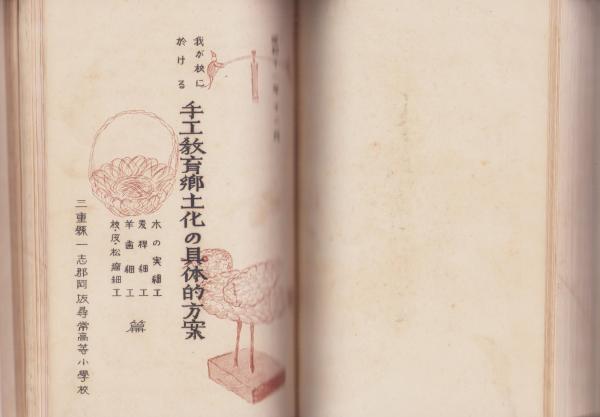 我が校に
於ける
手工教育鄕土化の具体的方案
木の実細工
麦稈細工
羊歯細工
枝・皮・松瘤細工
篇
三重縣一志郡阿坂尋常高等小學校